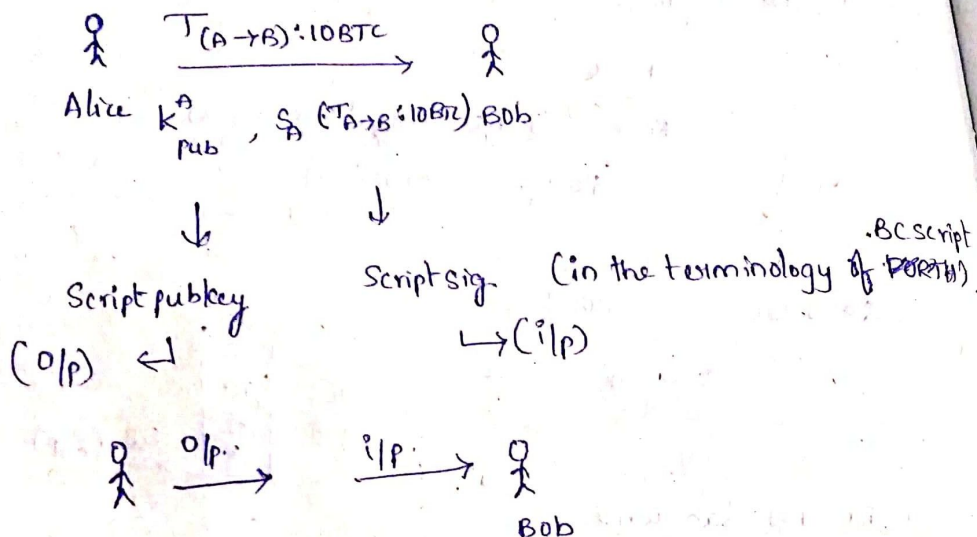 T(A→B):10BTC
Alice K^A_pub , S_A (T_A→B:10BTC) Bob
↓ ↓
Scriptpubkey Scriptsig (in the terminology of BCscript)
(o/p) ↵ ↳(i/p)
o/p. → i/p. →
Bob